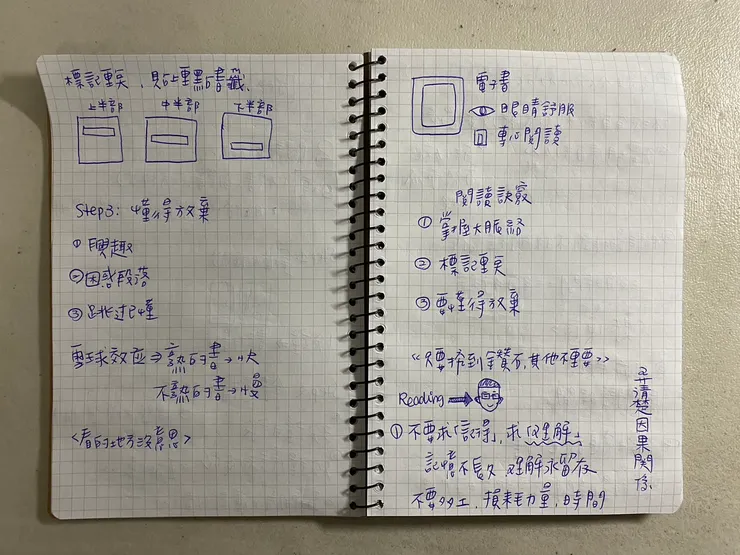 標記重点、貼上重點書籤.
上半部
中半部
下半部
Step3: 懂得放棄
① 興趣
②困惑段落
③ 跳过已懂
雪球效应⇒熟的書→快
不熟的書→慢
<看的地方沒意思>
電子書
眼睛舒服
專心閱讀
閱讀訣竅
① 掌握大脈絡
② 標記重点
③ 要懂得放棄
《只要挖到鑽石,其他不重要》
Reading
① 不要求「記得」,求「理解」
記憶不長久,理解永留存
損耗力量,時間
弄清楚因果關係